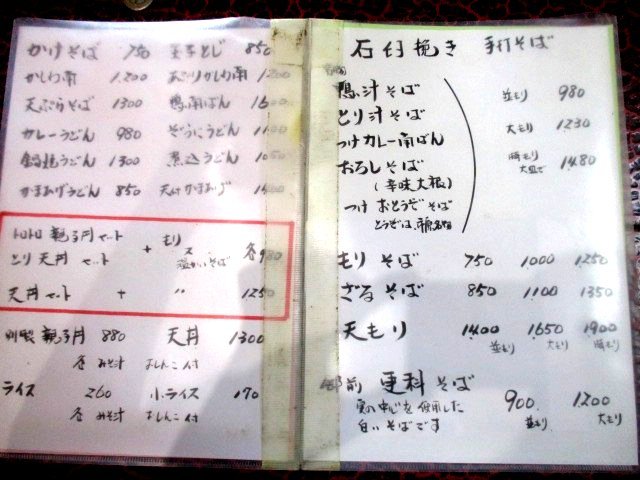 かけそば 750 玉子とじ 850
かしわ南 1,200 かしわ南 1200
天ぷらそば 1300 鴨南ばん
カレーうどん 980 ぞうにうどん
鍋焼うどん 1300 煮込うどん
かまあげうどん 850 天付かまあげ
トロトロ親子丼セット + もり
とり天丼セット 温かいそば 各980
天丼セット + 〃 1250
別製親子丼 880 天丼 1300
各みそ汁 おしんこ付
ライス 260 小ライス 170
各みそ汁 おしんこ付
石臼挽き 手打そば
鴨汁そば 並もり 980
とり汁そば
つけカレー南ばん 大もり 1230
おろしそば 1480
(辛味大根) 大皿で
つけおとうぞそば
とうぞは、
もりそば 750 1000 1250
ざるそば 850 1100 1350
天もり 1400 1650 1900
並もり 大もり
前 更科そば 900 1200
実の中心を使用した 並もり 大もり
白いそばです